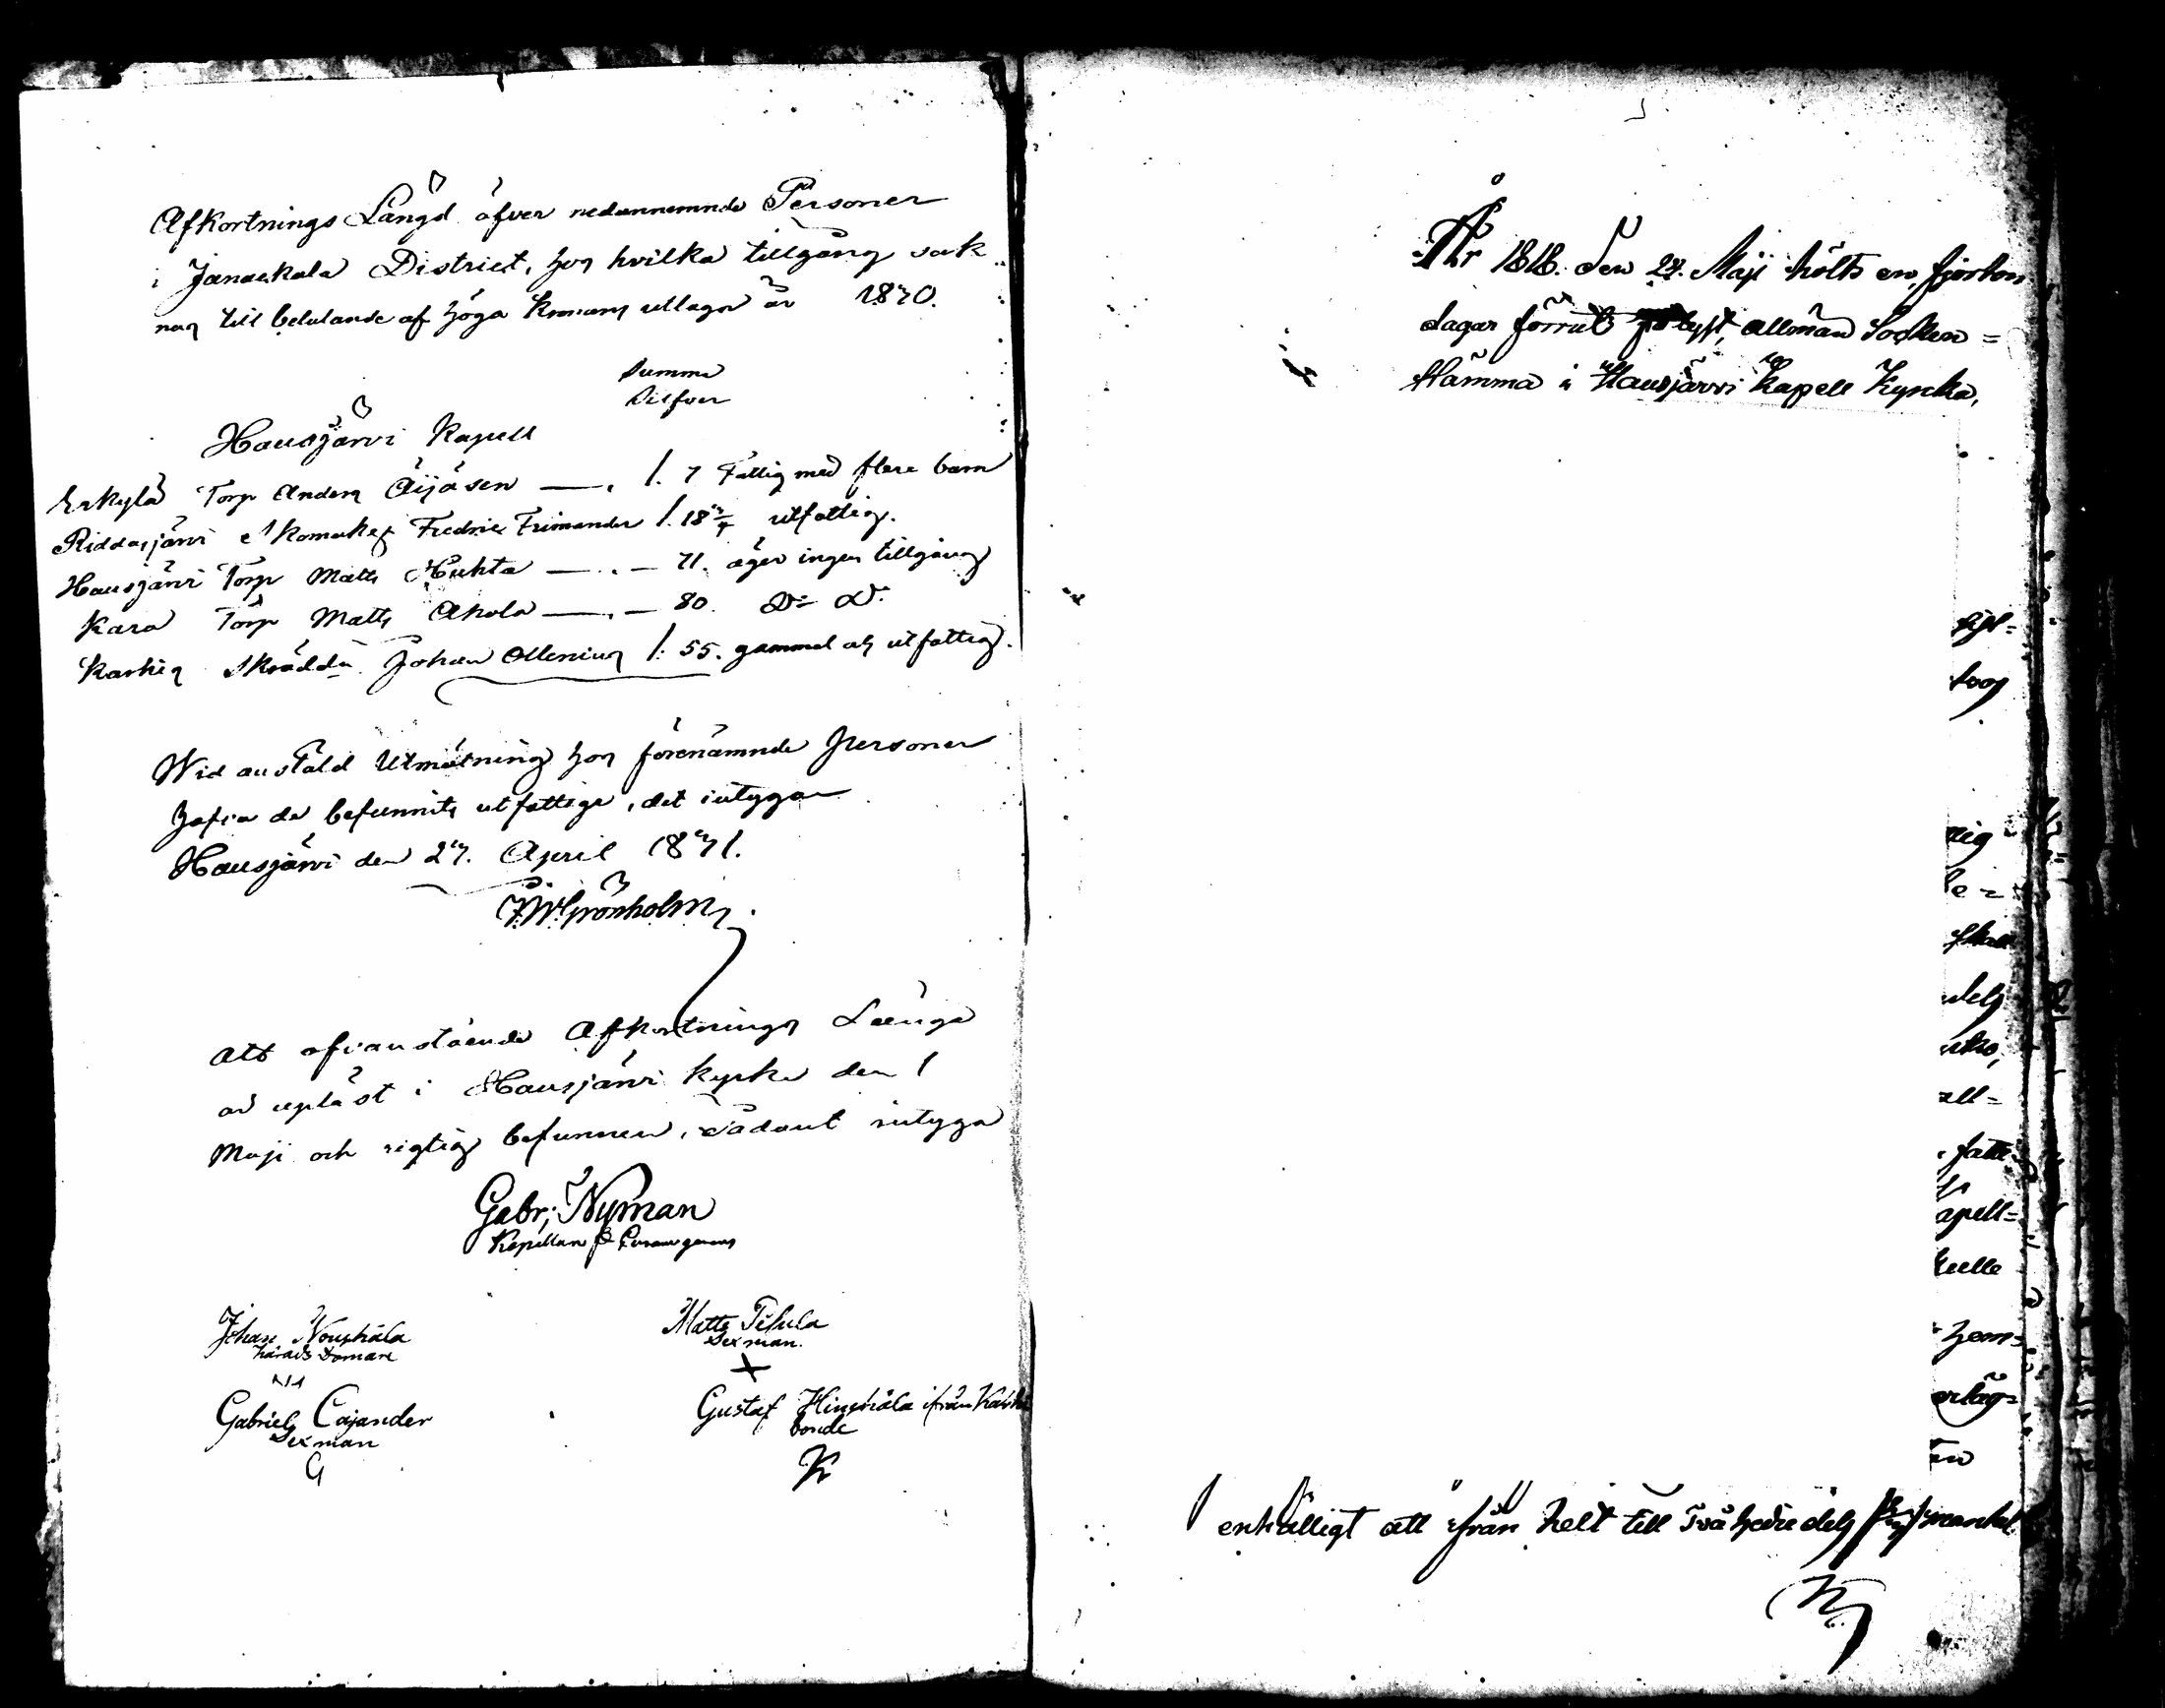 Afkortnings Längd öfver nedannemnde Personer
i Janackala District, hos hvilka tillgång sak
nas till betalande af höga Kronans utlagor år 1870.
Summa
Silfver
Hausjärvi Kapell
Erkylä Torp Anders Äijäsen 1. 7 Fattig med flere barn
Riddasjärvi Skomakes Fredric Frimander 1. 18 4/7 utfattig.
Hausjärvi Torp Matts Huhta 71. äger ingen tillgång
Kara Torp Matts Ahola 80. Do Do
Karhis Skräddn Johan Ollenius 1: 55. gammal och utfattig.
Wid anstäld Utmätning hos förenämnde personer
hafva de befunnits utfattige, det intygar
Hausjärvi den 27. April 1871.
F.W. Grönholm
Att ofvanstående Afkortnings Länge
är upläst i Hausjärvi kyrka den 1
Maji och rigtig befunnen, sådant intyga
Gabr; Nyman
Kapellan
Johan Nouskala
härads Domare
Matts Pihula
Sexman.
Gabriels Cajander
Sexman
G
Gustaf Hinskala ifrån Karhi
bonde
K
År 1818. Den 24. Maji hölts en, fjorton
dagar förrut lyst, allmän Socken=
Stämma i Hausjärvi Kapell Kyrka,
rig
le=
skall
dels
ell=
fatte
apell=
kulle
hem=
erläg=
en
enhälligt att ifrån helt till två tredie dels mantal